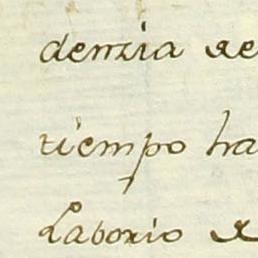 denzia re
tiempo ha
Laborio